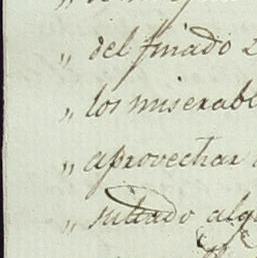 „ del finado
„ los miserabl
„ aprovechar
„ sultado alg